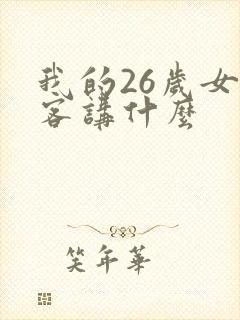 我的26歲女
客講什麼
笑年華